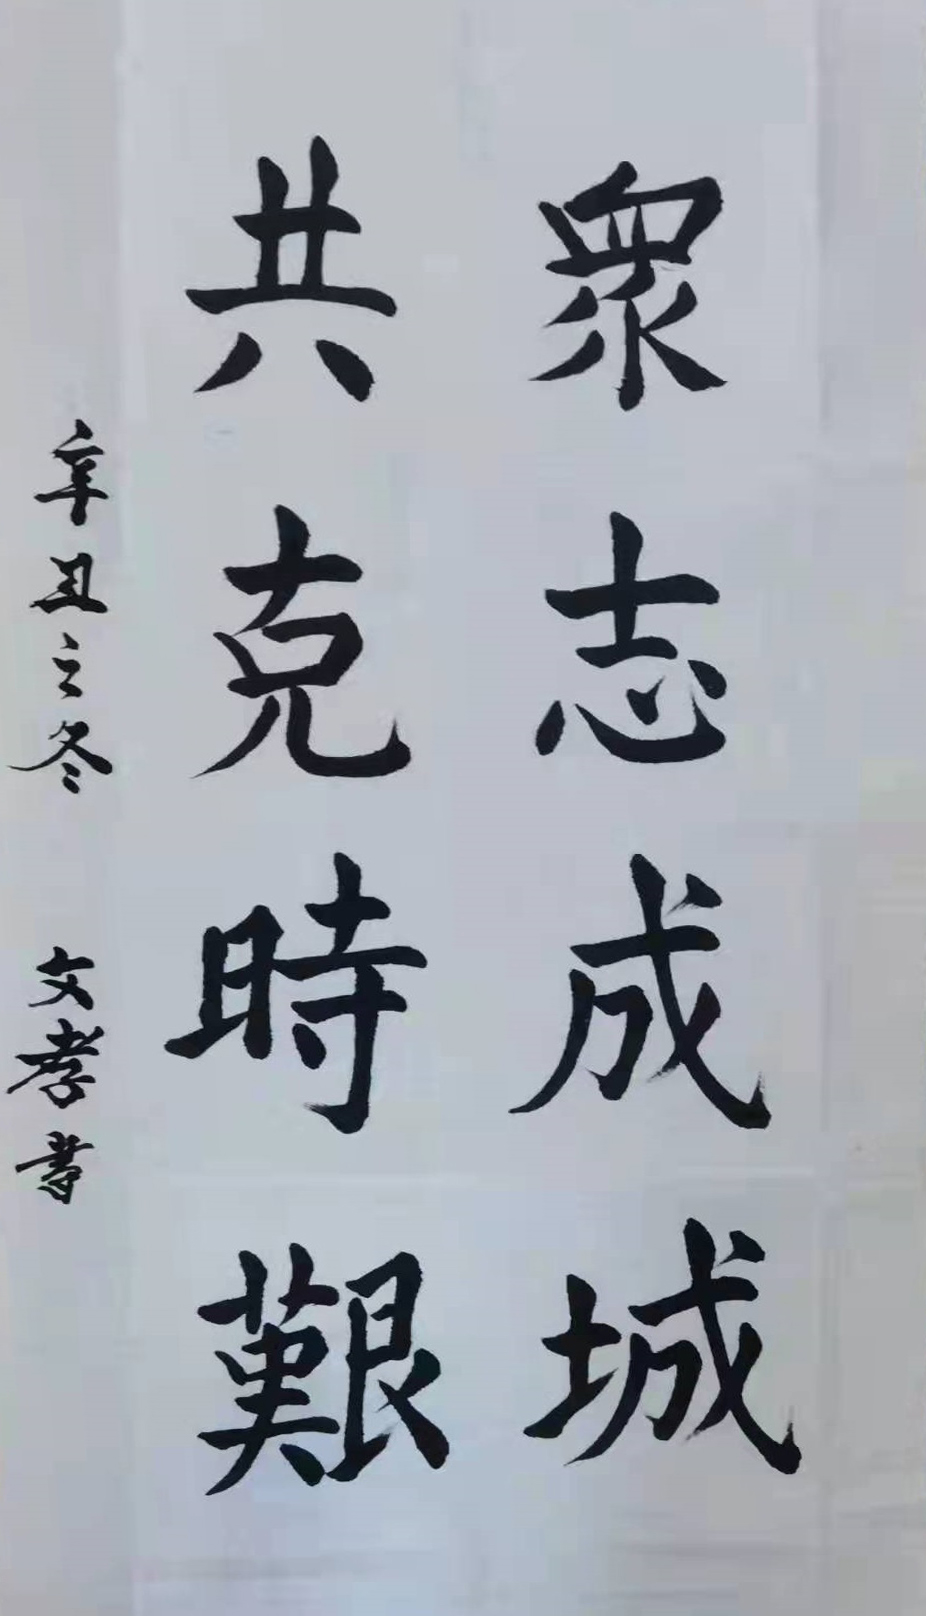 眾志成城
共克時艱
辛丑之冬 文孝書